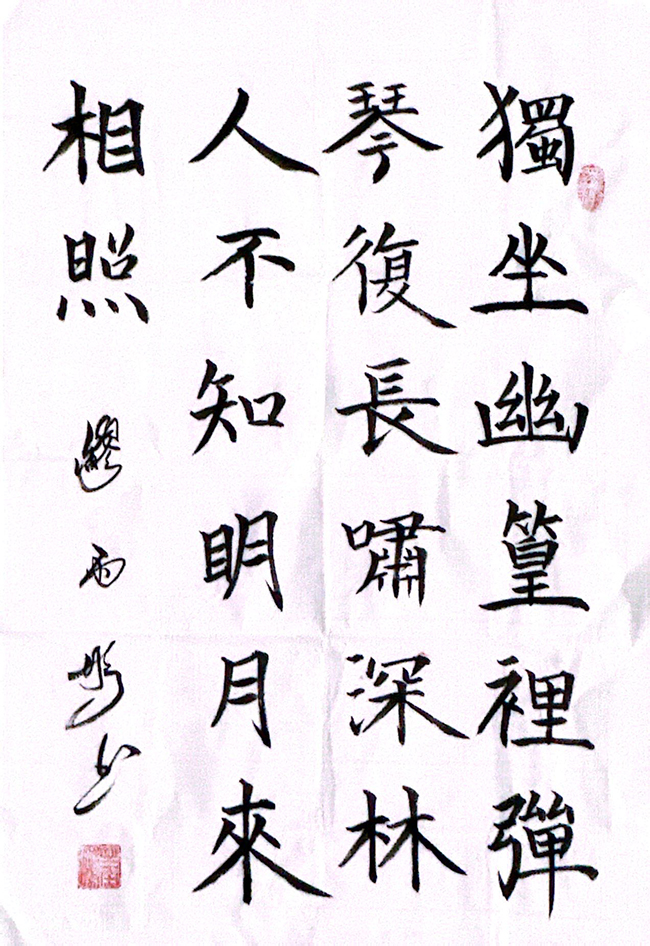 獨坐幽篁裡彈
琴復長嘯深林
人不知明月來
相照
雨